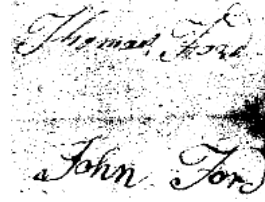 Thomas Ford
John Ford